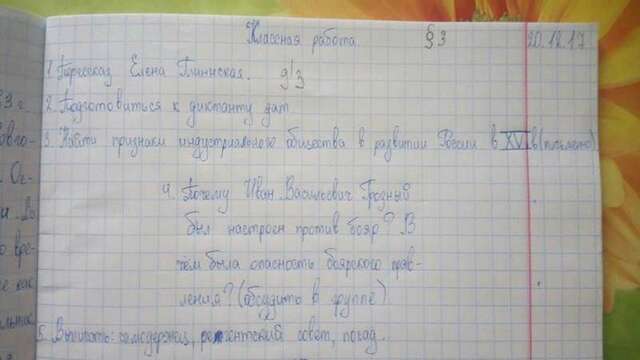 Классная работа § 3 20.12.17
1. Пересказ Елена Глинская. 9/3
2. Подготовиться к диктанту дат
3. Найти признаки индустриального общества в развитии России в XVI в (письменно)
4. Почему Иван Васильевич Грозный
был настроен против бояр? В
чём была опасность боярского прав-
ления? (обсудить в группе)
5. Выписать: самодержец, регентский совет, посад.
9 г.
Ог-
До
вре-
как